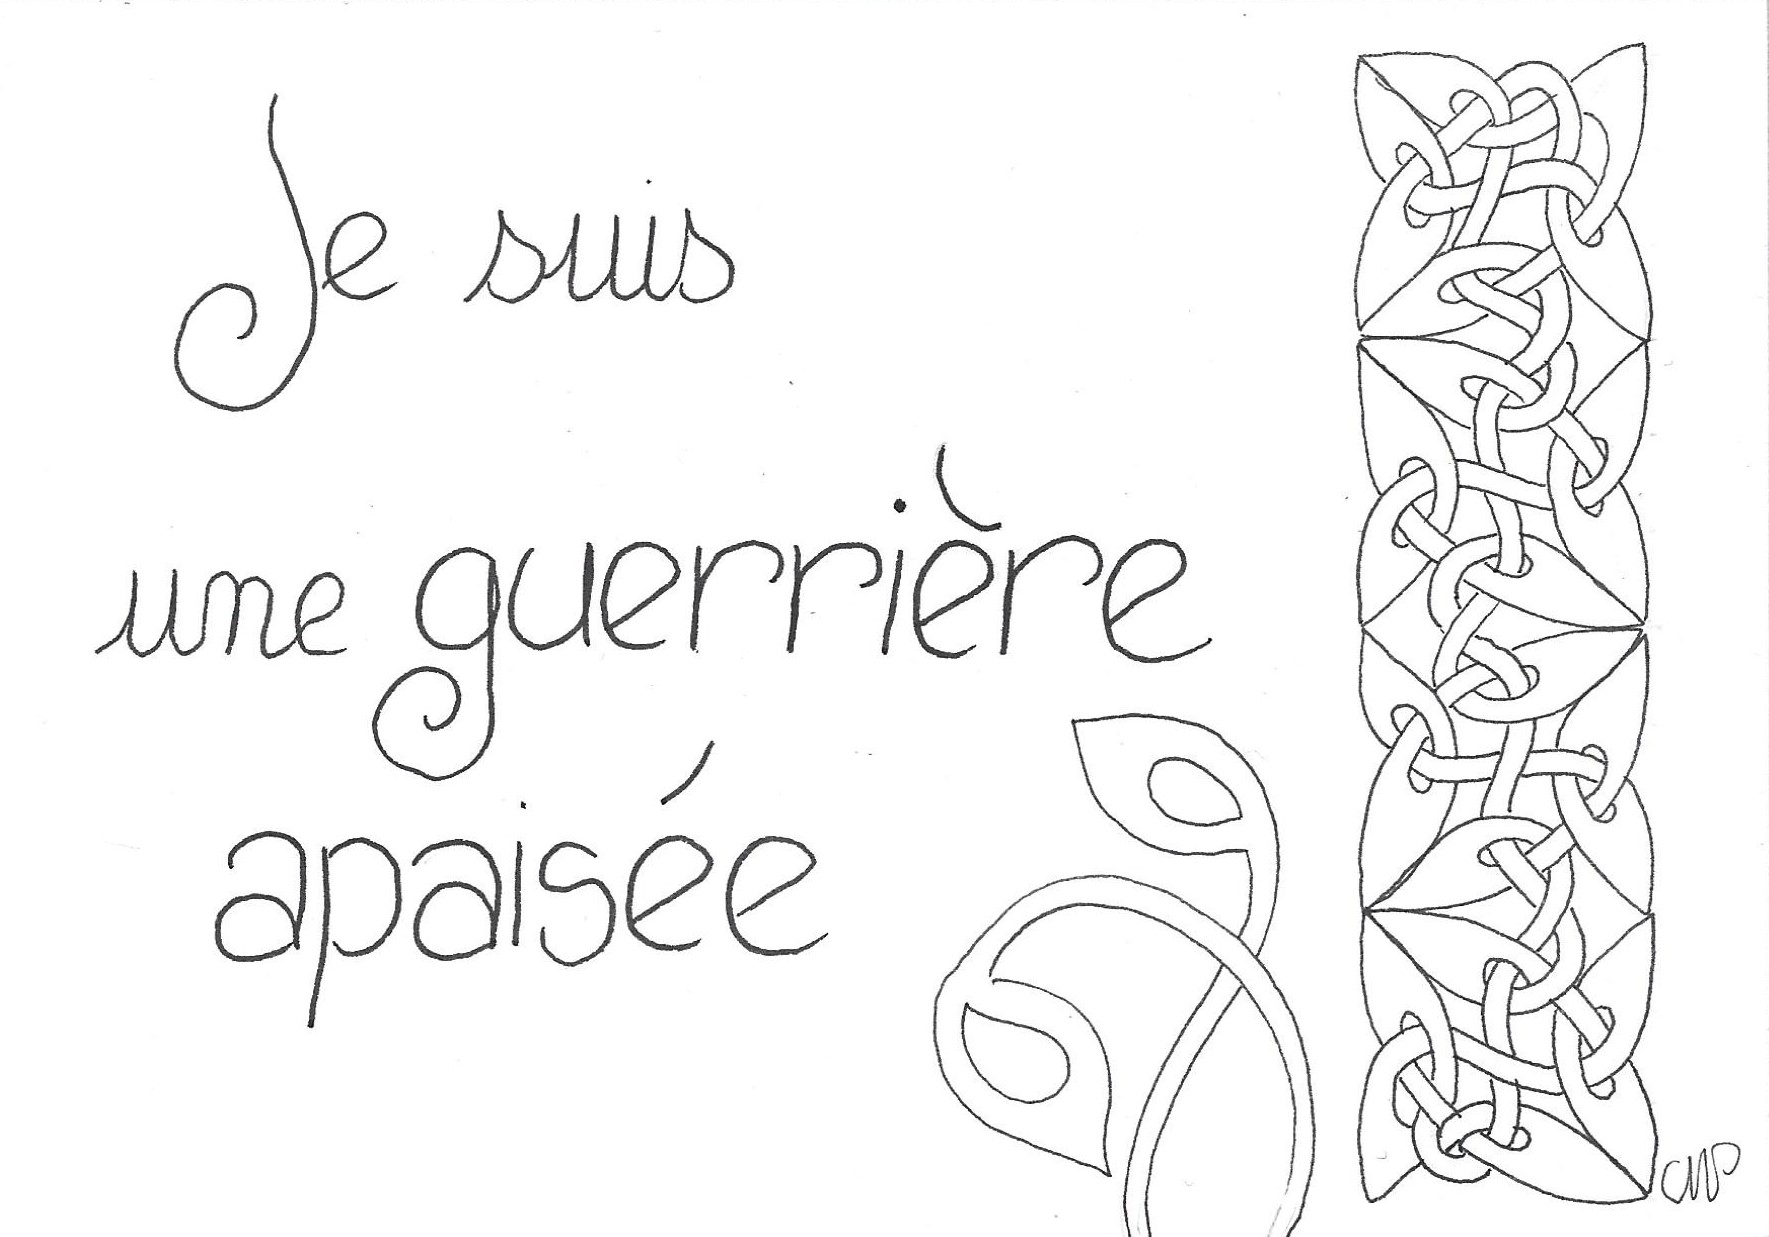 Je suis
une guerrière
apaisée